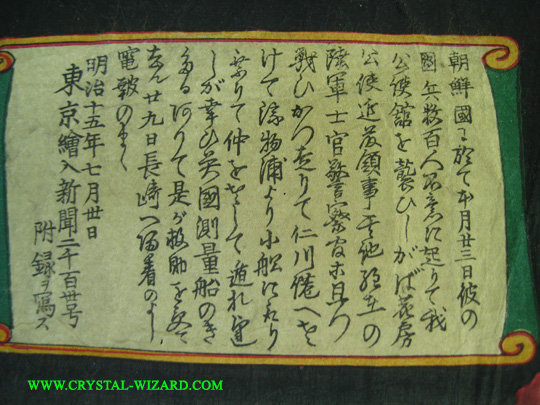 朝鮮國に於て本月廿三日彼の
國兵数百人不意に起りて我
公使舘を襲ひしがば花房
公使近藤領事其他の
陸軍士官警察官等且つ
戦ひかつ走りて仁川港へ
けて濟物浦より小船に
りて仲をさして遁れ
しが幸ひ英國測量船のき
たるありて是が救助を受て
去ル廿九日長崎へ着のよし
電報のまゝ
明治十五年七月卅日
東京繪入新聞二千百卅号
附録ヲ寫ス
WWW.CRYSTAL-WIZARD.COM